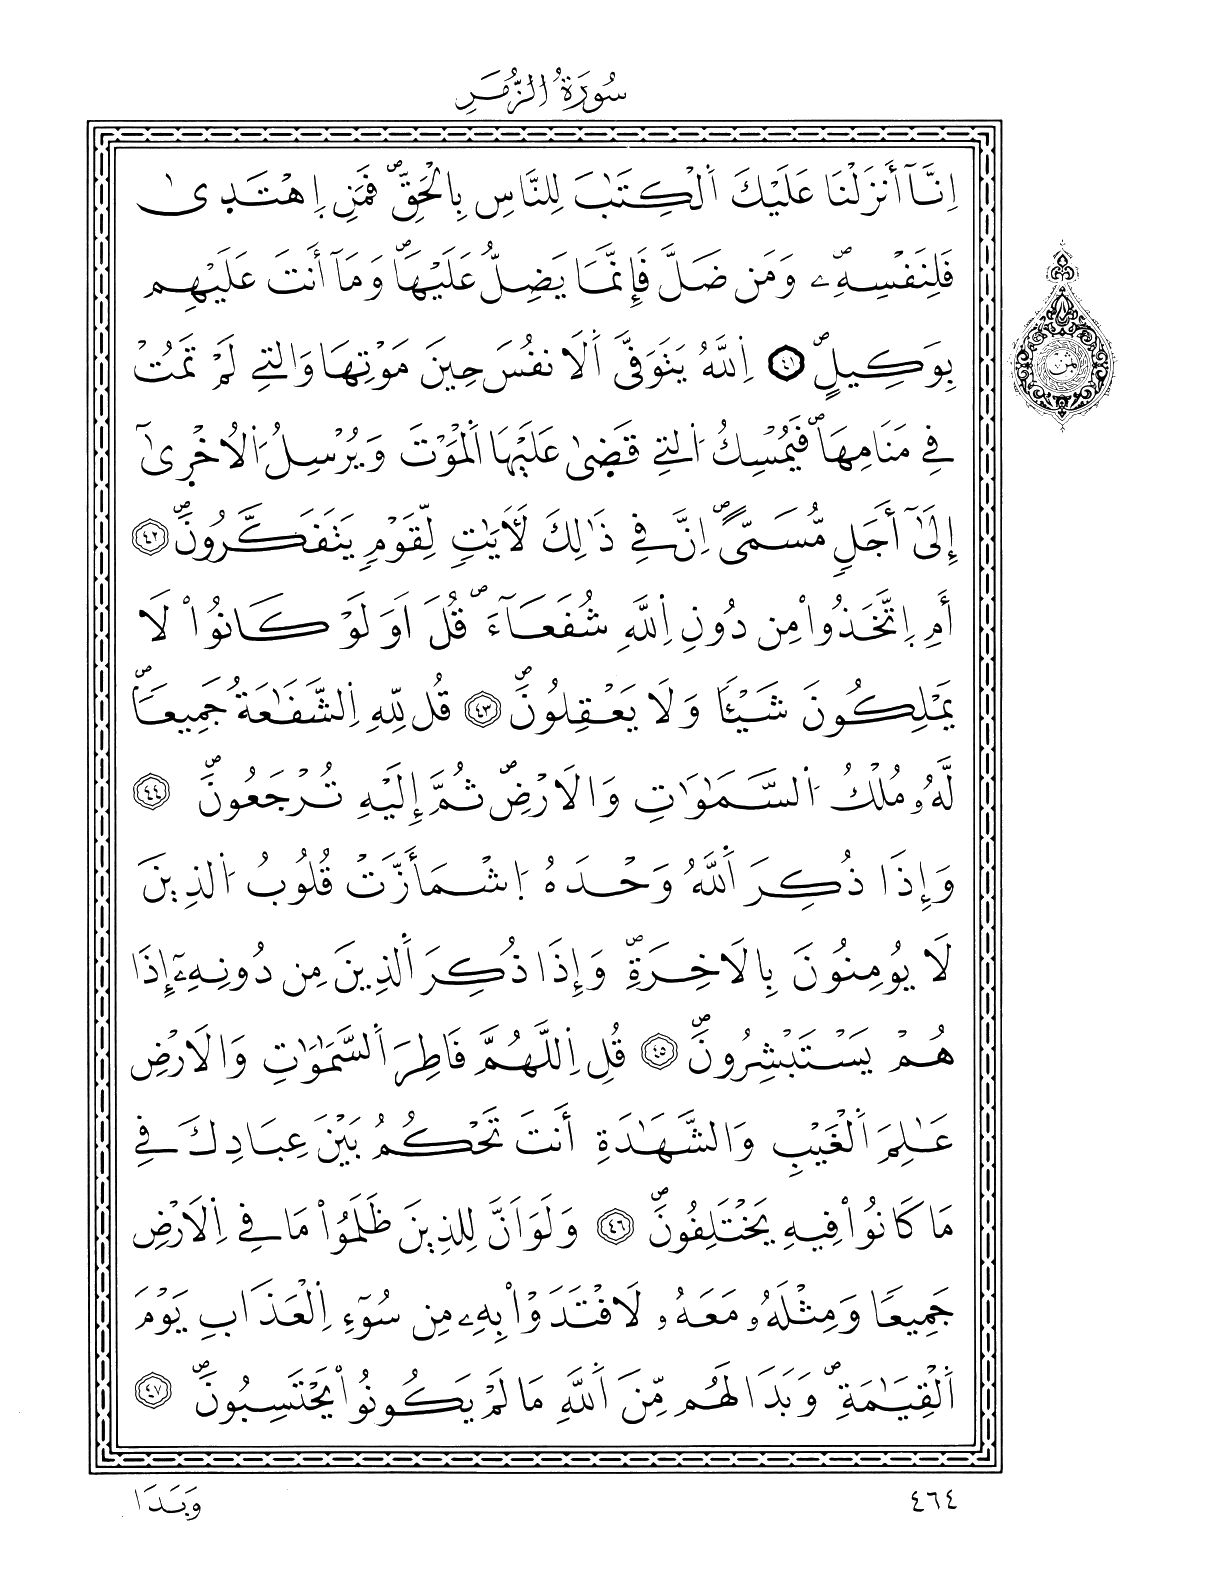 سُورَةُ الزُّمَرِ
اِنَّآ أَنزَلْنَا عَلَيْكَ اَ۬لْكِتَٰبَ لِلنَّاسِ بِالْحَقِّۖ فَمَنِ اِ۪هْتَد۪ىٰ
فَلِنَفْسِهِۦۖ وَمَن ضَلَّ فَإِنَّمَا يَضِلُّ عَلَيْهَاۖ وَمَآ أَنتَ عَلَيْهِم
بِوَكِيلٍۖ ٤١ اِ۬للَّهُ يَتَوَفَّى اَ۬لَانفُسَ حِينَ مَوْتِهَا وَالتِے لَمْ تَمُتْ
فِے مَنَامِهَاۖ فَيُمْسِكُ اُ۬لتِے قَض۪ىٰ عَلَيْهَا اَ۬لْمَوْتَ وَيُرْسِلُ اُ۬لُاخْر۪ىٰٓ
إِلَىٰٓ أَجَلٖ مُّسَمّىًۖ اِنَّ فِے ذَٰلِكَ لَأٓيَٰتٖ لِّقَوْمٖ يَتَفَكَّرُونَۖ ٤٢
أَمِ اِ۪تَّخَذُواْ مِن دُونِ اِ۬للَّهِ شُفَعَآءَۖ قُلَ اَوَلَوْ كَانُواْ لَا
يَمْلِكُونَ شَيْـٔاٗ وَلَا يَعْقِلُونَۖ ٤٣ قُل لِّلهِ اِ۬لشَّفَٰعَةُ جَمِيعاٗۖ
لَّهُۥ مُلْكُ اُ۬لسَّمَٰوَٰتِ وَالَارْضِۖ ثُمَّ إِلَيْهِ تُرْجَعُونَۖ ٤٤
وَإِذَا ذُكِرَ اَ۬للَّهُ وَحْدَهُ اُ۪شْمَأَزَّتْ قُلُوبُ اُ۬لذِينَ
لَا يُومِنُونَ بِالَاخِرَةِۖ وَإِذَا ذُكِرَ اَ۬لذِينَ مِن دُونِهِۦٓ إِذَا
هُمْ يَسْتَبْشِرُونَۖ ٤٥ قُلِ اِ۬للَّهُمَّ فَاطِرَ اَ۬لسَّمَٰوَٰتِ وَالَارْضِ
عَٰلِمَ اَ۬لْغَيْبِ وَالشَّهَٰدَةِ أَنتَ تَحْكُمُ بَيْنَ عِبَادِكَ فِے
مَا كَانُواْ فِيهِ يَخْتَلِفُونَۖ ٤٦ وَلَوَ اَنَّ لِلذِينَ ظَلَمُواْ مَا فِے اِ۬لَارْضِ
جَمِيعاٗ وَمِثْلَهُۥ مَعَهُۥ لَافْتَدَوْاْ بِهِۦ مِن سُوٓءِ اِ۬لْعَذَابِ يَوْمَ
اَ۬لْقِيَٰمَةِۖ وَبَدَا لَهُم مِّنَ اَ۬للَّهِ مَا لَمْ يَكُونُواْ يَحْتَسِبُونَۖ ٤٧
ثمن
٤٦٤
وَبَدَا